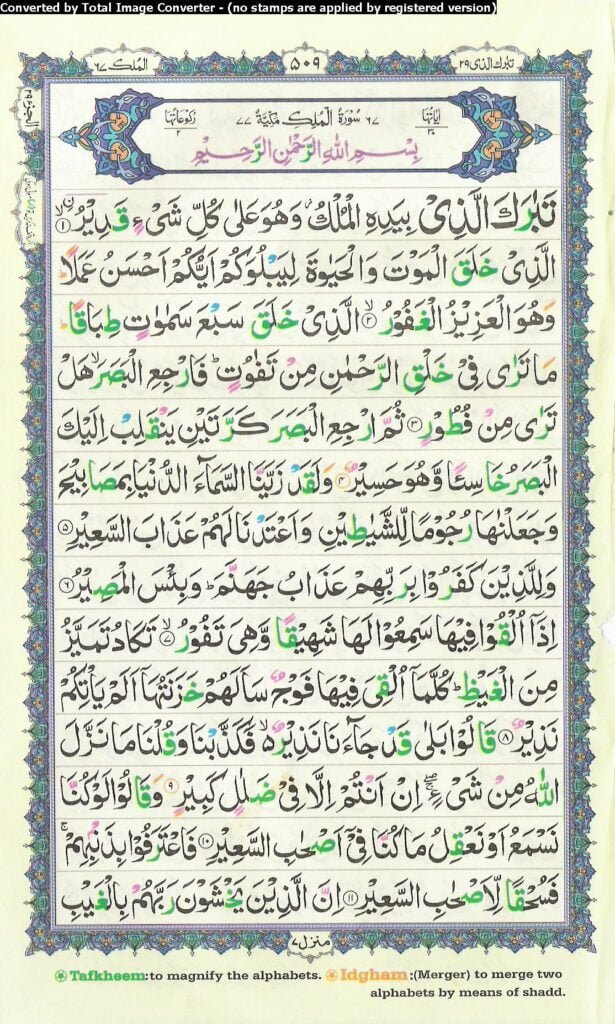 Converted by Total Image Converter - (no stamps are applied by registered version)
تبٰرك الذی ٢٩
٥٠٩
الملك ٦٧
اٰیاتها ٣٠
٦٧ سُوْرَةُ الْمُلْكِ مَكِّيَّةٌ ٧٧
رکوعاتها ٢
بِسْمِ اللهِ الرَّحْمٰنِ الرَّحِيْمِ
تَبٰرَكَ الَّذِیْ بِیَدِهِ الْمُلْكُ ۫ وَهُوَ عَلٰی كُلِّ شَیْءٍ قَدِیْرُ ۙ﴿۱﴾
الَّذِیْ خَلَقَ الْمَوْتَ وَالْحَیٰوةَ لِیَبْلُوَكُمْ اَیُّكُمْ اَحْسَنُ عَمَلًا ؕ
وَهُوَ الْعَزِیْزُ الْغَفُوْرُ ۙ﴿۲﴾ الَّذِیْ خَلَقَ سَبْعَ سَمٰوٰتٍ طِبَاقًا ؕ
مَا تَرٰی فِیْ خَلْقِ الرَّحْمٰنِ مِنْ تَفٰوُتٍ ؕ فَارْجِعِ الْبَصَرَ ۙ هَلْ
تَرٰی مِنْ فُطُوْرٍ ﴿۳﴾ ثُمَّ ارْجِعِ الْبَصَرَ كَرَّتَیْنِ یَنْقَلِبْ اِلَیْكَ
الْبَصَرُ خَاسِئًا وَّهُوَ حَسِیْرٌ ﴿۴﴾ وَلَقَدْ زَیَّنَّا السَّمَآءَ الدُّنْیَا بِمَصَابِیْحَ
وَجَعَلْنٰهَا رُجُوْمًا لِّلشَّیٰطِیْنِ وَاَعْتَدْنَا لَهُمْ عَذَابَ السَّعِیْرِ ﴿۵﴾
وَلِلَّذِیْنَ كَفَرُوْا بِرَبِّهِمْ عَذَابُ جَهَنَّمَ ؕ وَبِئْسَ الْمَصِیْرُ ﴿۶﴾
اِذَاۤ اُلْقُوْا فِیْهَا سَمِعُوْا لَهَا شَهِیْقًا وَّهِیَ تَفُوْرُ ۙ﴿۷﴾ تَكَادُ تَمَیَّزُ
مِنَ الْغَیْظِ ؕ كُلَّمَاۤ اُلْقِیَ فِیْهَا فَوْجٌ سَاَلَهُمْ خَزَنَتُهَاۤ اَلَمْ یَاْتِكُمْ
نَذِیْرٌ ﴿۸﴾ قَالُوْا بَلٰی قَدْ جَآءَنَا نَذِیْرٌ ۙ۬ فَكَذَّبْنَا وَقُلْنَا مَا نَزَّلَ
اللهُ مِنْ شَیْءٍ ۚۖ اِنْ اَنْتُمْ اِلَّا فِیْ ضَلٰلٍ كَبِیْرٍ ﴿۹﴾ وَقَالُوْا لَوْ كُنَّا
نَسْمَعُ اَوْ نَعْقِلُ مَا كُنَّا فِیْۤ اَصْحٰبِ السَّعِیْرِ ﴿۱۰﴾ فَاعْتَرَفُوْا بِذَنْۢبِهِمْ ۚ
فَسُحْقًا لِّاَصْحٰبِ السَّعِیْرِ ﴿۱۱﴾ اِنَّ الَّذِیْنَ یَخْشَوْنَ رَبَّهُمْ بِالْغَیْبِ
منزل ٧
Tafkheem:to magnify the alphabets. Idgham:(Merger) to merge two
alphabets by means of shadd.